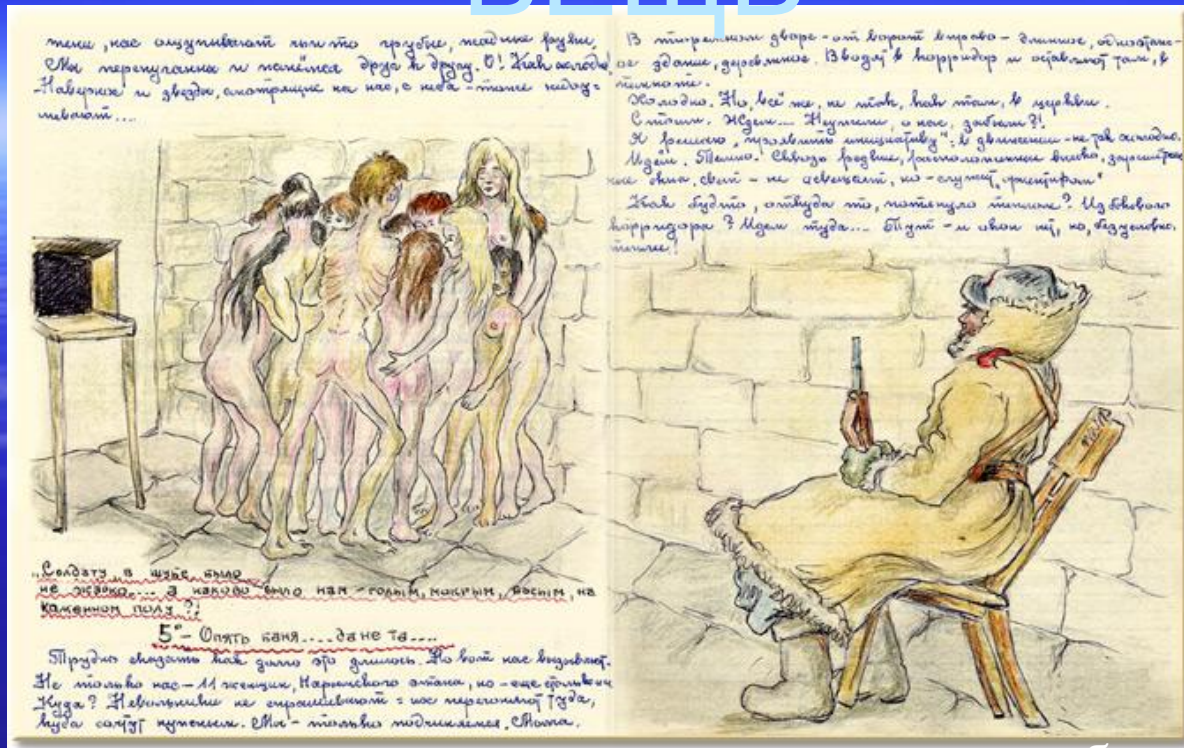 ВЕЩЬ
нас ощупывают чьи-то грубые, жадные руки.
Мы перепуганны и жмёмся друг к другу. О! Как холодно!
-Наверное и звёзды, смотрящие на нас, с неба - тоже недоу=
мевают...
„Солдату в шубе было
не жарко.... а каково было нам - голым, мокрым, босым, на
каменном полу?!
5° - Опять баня.....да не та....
Трудно сказать как долго это длилось. Но вот нас вызывают.
Не только нас - 11 женщин, Нарымского этапа, но - еще столько же
Куда? Невольники не спрашивают = нас перегоняют туда,
куда сочтут нужным. Мы - только подчиняемся, Мама.
В тюремном дворе - от ворот вправо - длинное, одноэтаж-
ое здание, деревянное. Вводят в корридор и оставляют там, в
темноте.
Холодно. Но, всё же, не так, как там, в церкви.
Стоим. Ждем... Неужели, о нас, забыли?!
Я решаю „проявить инициативу": в движении - не так холодно.
Идем. Темно. Сквозь редкие, расположенные высоко, зарешечен
ные окна, свет - не освещает, но - служит „ориентиром"
Как будто, откуда то, потянуло теплом? Из бокового
корридора? Идем туда... Тут - и окон нет, но, безусловно,
теплее!